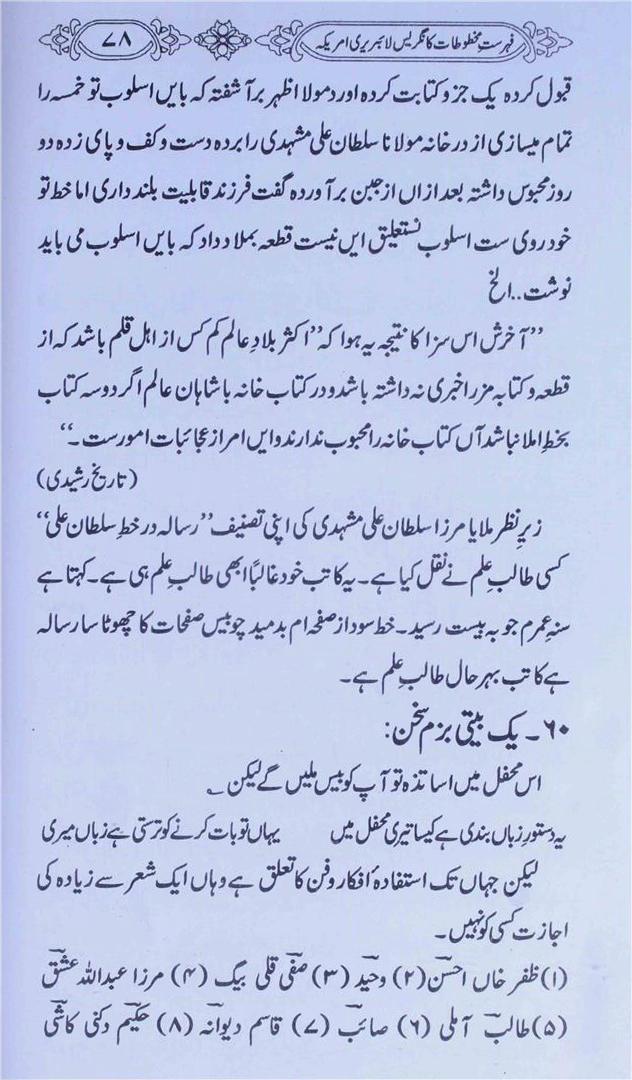 فہرستِ مخطوطات کانگریس لائبریری امریکہ ۷۸
قبول کردہ یک جزو کتابت کردہ اورد مولا اظہر برآشفتہ کہ بایں اسلوب تو خمسہ را
تمام میسازی از در خانہ مولانا سلطان علی مشہدی را بردہ دست و کف و پای زدہ دو
روز محبوس داشتہ بعد ازاں از جبن برآوردہ گفت فرزند قابلیت بلند داری اما خط تو
خود روی ست اسلوب نستعلیق ایں نیست قطعہ بملا دداد کہ بایں اسلوب می باید
نوشت..الخ
”آخرش اس سزا کا نتیجہ یہ ہوا کہ ”اکثر بلادِ عالم کم کس از اہل قلم باشد کہ از
قطعہ و کتابہ مزر اخبری نہ داشتہ باشد و در کتاب خانہ با شاہان عالم اگر دو سہ کتاب
بخطِ املا نباشد آں کتاب خانہ را محبوب ندارند و ایں امر از عجائبات امورست۔“
(تاریخ رشیدی)
زیرِ نظر ملا یا مرزا سلطان علی مشہدی کی اپنی تصنیف ”رسالہ در خطِ سلطان علی“
کسی طالب علم نے نقل کیا ہے۔ یہ کاتب خود غالباً ابھی طالب علم ہی ہے۔ کہتا ہے
سنہ عمرم جو بہ بیست رسید۔ خط سود از صفحہ ام بدمید چوبیس صفحات کا چھوٹا سا رسالہ
ہے کاتب بہر حال طالب علم ہے۔
۶۰۔ یک بیتی بزم سخن:
اس محفل میں اساتذہ تو آپ کو بیس ملیں گے لیکن ؎
یہ دستورِ زباں بندی ہے کیسا تیری محفل میں یہاں تو بات کرنے کو ترستی ہے زباں میری
لیکن جہاں تک استفادۂ افکار و فن کا تعلق ہے وہاں ایک شعر سے زیادہ کی
اجازت کسی کو نہیں۔
(۱) ظفر خاں احسن (۲) وحید (۳) صفی قلی بیگ (۴) مرزا عبداللہ عشق
(۵) طالب آملی (۶) صائب (۷) قاسم دیوانہ (۸) حکیم دکنی کاشی